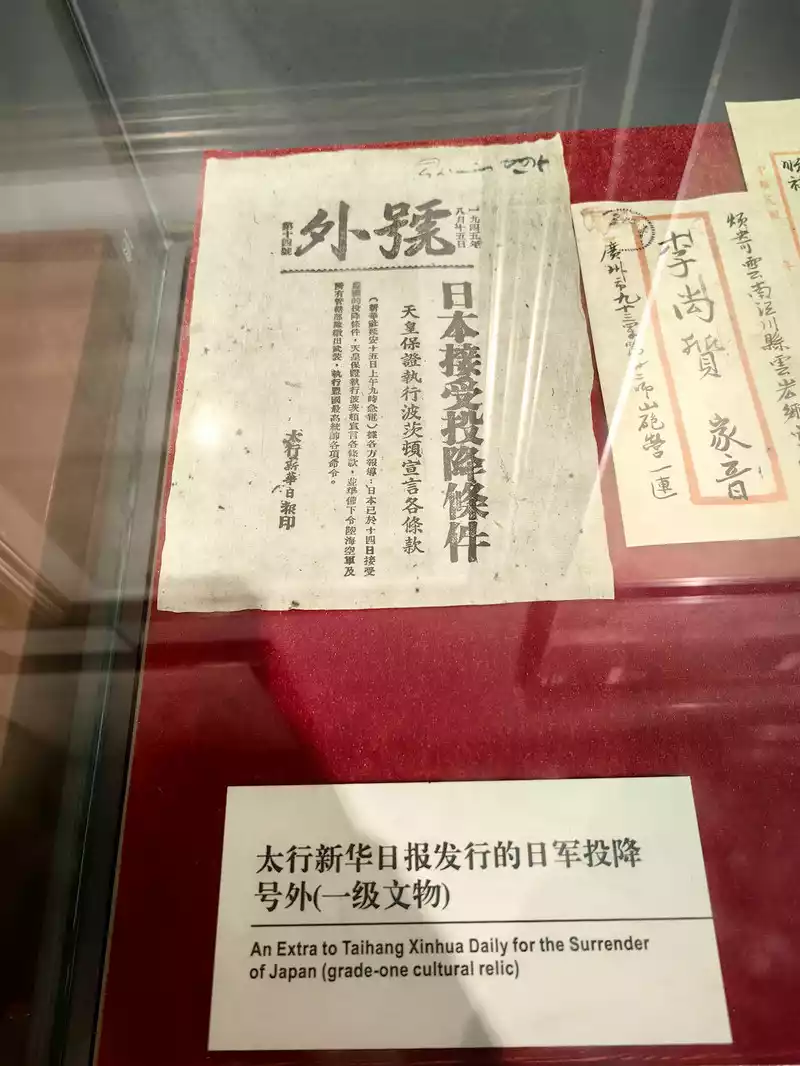 號外
一九四五年
八月十五日
第十四號
日本接受投降條件
天皇保證執行波茨頓宣言各條款
（新華社延安十五日上午九時急電）據各方報導：日本已於十四日接受
盟國的投降條件，天皇保證執行波茨頓宣言各條款，並準備下令陸海空軍及
所有管轄部隊繳出武裝，執行盟國最高統帥各項命令。
太行新華日報印
煩寄雲南江川縣雲岩鄉
李尚㩗 家音
廣州市九十三軍
師山砲營一連
太行新华日报发行的日军投降
号外(一级文物)
An Extra to Taihang Xinhua Daily for the Surrender
of Japan (grade-one cultural relic)